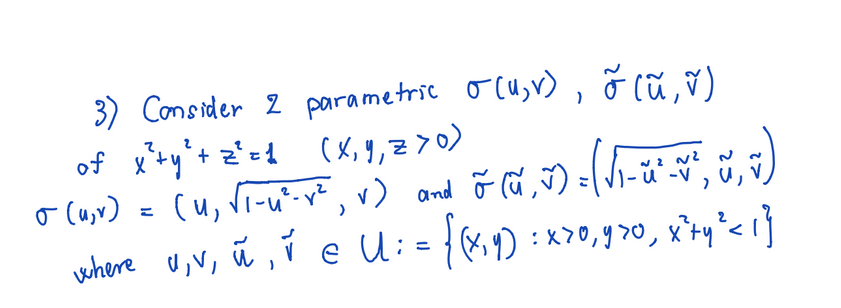 3) Consider 2 parametric σ(u,v), σ̃(ũ,ṽ)
of x²+y²+z²=1 (x,y,z>0)
σ(u,v) = (u, √(1-u²-v²), v) and σ̃(ũ,ṽ) = (√(1-ũ²-ṽ²), ũ, ṽ)
where u,v, ũ, ṽ ∈ U := {(x,y) : x>0, y>0, x²+y²<1}